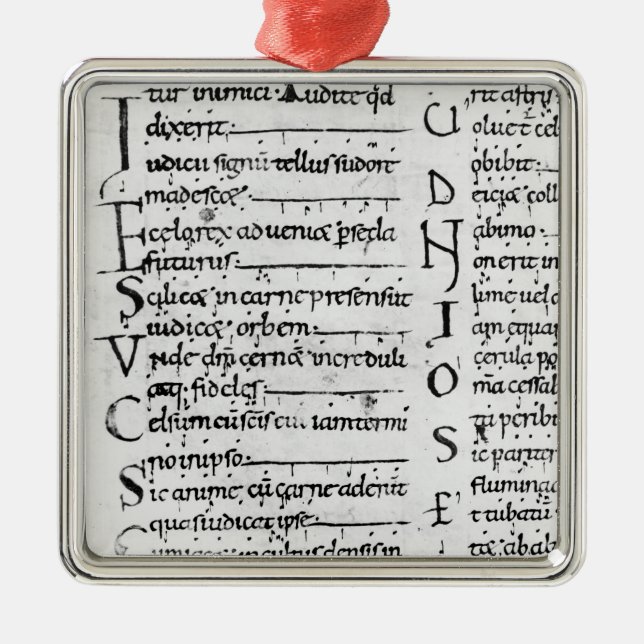 tur inimici · Audite q̄d
dixerit ·
Iudicii signū tellus sudore
madescæ ·
E celo rex adueniæ p secla
futurus ·
Scilicæ in carne presens ut
iudicæ orbem ·
Vnde dm̄ cernæ increduli
atq; fideles ·
Celsum cū scīs eui iam termi
no in ipso ·
Sic anime cū carne aderūt
quas iudicat ipse ·
incultus densis in
rit astris
Uolue t cel
obibit ·
Deiciæ coll
ab imo ·
Non erit in
lime uel
Iam equan
cerula po
Oma cessab
S ta peribi
sic pariter
flumina
Et tubatū
tæ ab ab